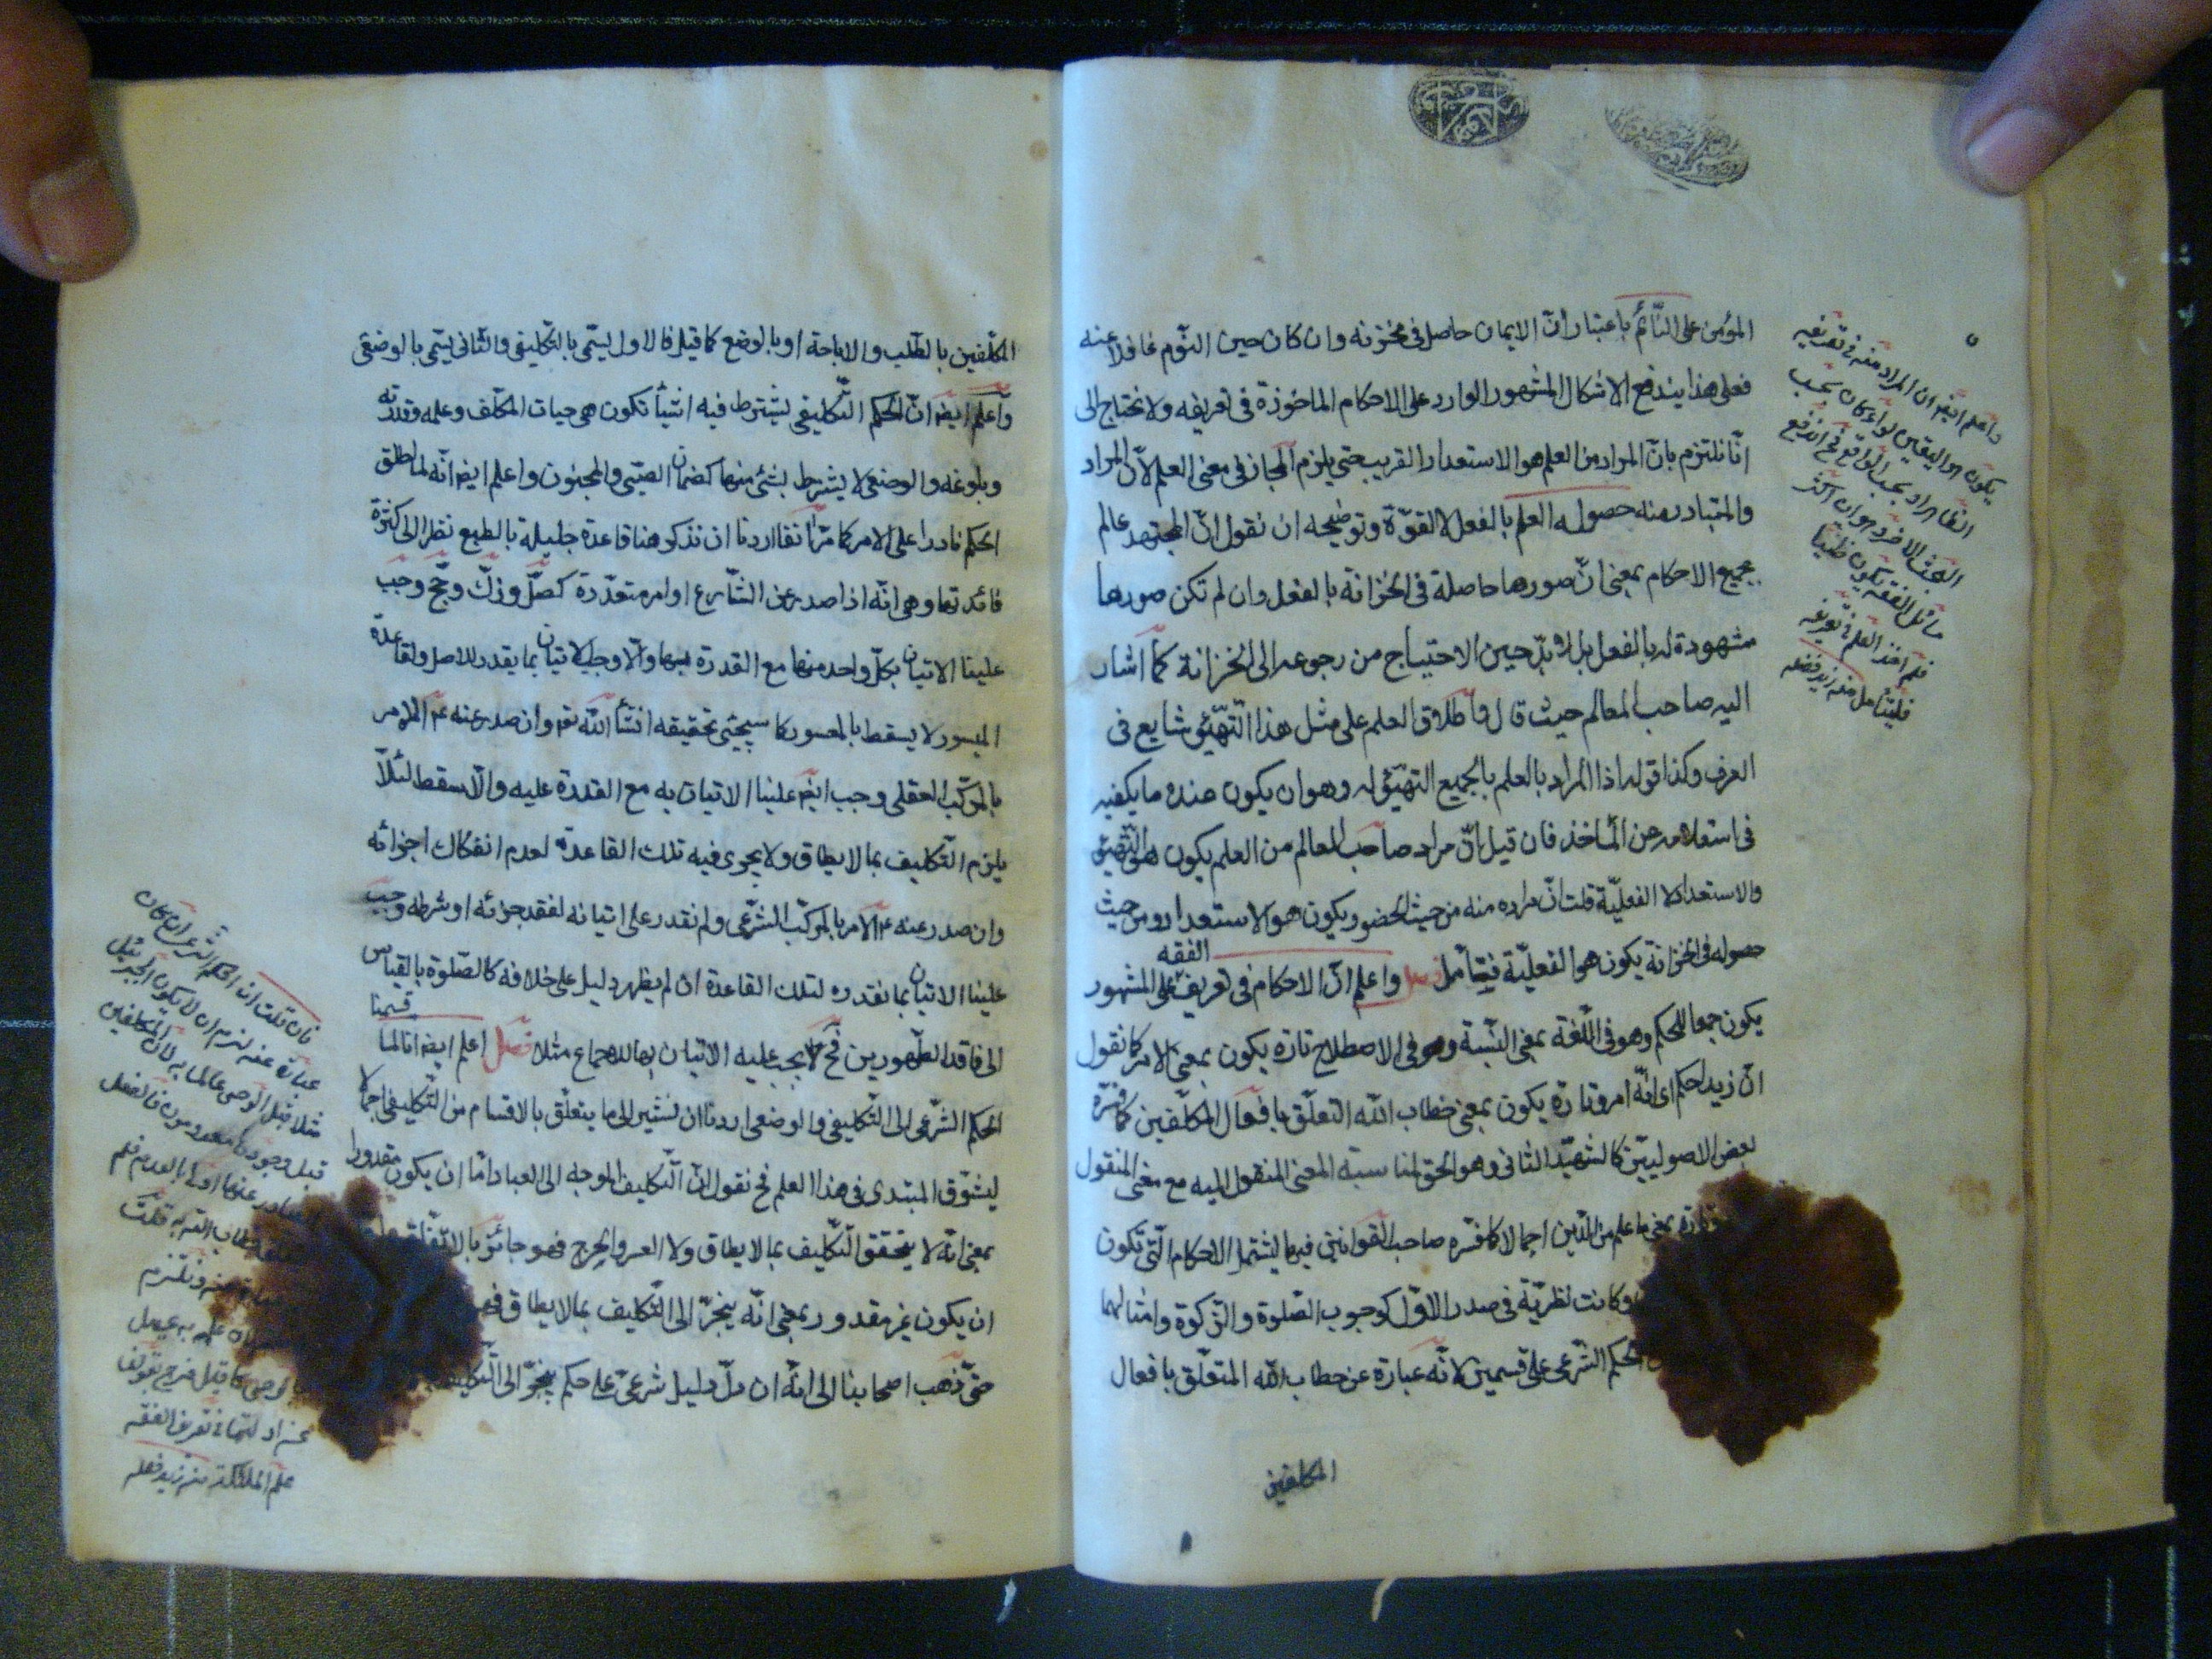 المؤمن على النّائم باعتبار انّ الايمان حاصل فى مخزنه وان كان حين النّوم غافلا عنه
فعلى هذا يندفع الاشكال المشهور الوارد على الاحكام الماخوذة فى تعريفه ولا نحتاج الى
انّا نلتزم بانّ المراد من العلم هو الاستعداد القريب حتى يلزم المجاز فى معنى العلم لانّ المراد
والمتبادر منه حصوله العلم بالفعل لا القوّة وتوضيحه ان نقول انّ المجتهد عالم
بجميع الاحكام بمعنى انّ صورها حاصلة فى الخزانة بالفعل وان لم تكن صورها
مشهودة له بالفعل بل لا بدّ حين الاحتياج من رجوعه الى الخزانة كما اشار
اليه صاحب المعالم حيث قال واطلاق العلم على مثل هذا التّهيّئ شايع فى
العرف وكذا قوله اذا المراد بالعلم بالجميع التهيّئ له وهو ان يكون عنده ما يكفيه
فى استعلامه من المأخذ فان قيل انّ مراد صاحب المعالم من العلم يكون هو التّهيّئ
والاستعداد لا الفعليّة قلت انّ مراده منه من حيث الحضور يكون هو الاستعداد ومن حيث
حصوله فى الخزانة يكون هو الفعليّة فتأمل فصل واعلم انّ الاحكام فى تعريف الفقه على المشهور
يكون جمعا للحكم وهو فى اللّغة بمعنى النّسبة وهو فى الاصطلاح تارة يكون بمعنى الامر كما نقول
انّ زيدا حكم اى انّه امر وتارة يكون بمعنى خطاب اللّه المتعلّق بافعال المكلّفين كما فسّره
بعض الاصوليّين كالشهيد الثانى وهو الحق لمناسبة المعنى المنقول اليه مع معنى المنقول
وتارة بمعنى ما علم من الدّين اجمالا كما فسّره صاحب القوانين فيها ليشتمل الاحكام الّتى تكون
وكانت نظريّة فى صدر الاوّل كوجوب الصّلوة والزّكوة وامثالهما
الحكم الشّرعى على قسمين لانّه عبارة عن خطاب اللّه المتعلّق بافعال
المكلفين
واعلم ايضا ان المراد منه فى تعريفه
يكون هو اليقين سواء كان بحسب
الظاهر او بحسب الواقع فح اندفع
البحث الاخر وهو ان اكثر
مسائل الفقه يكون ظنيا
فلم اخذ العلم فى تعريفه
فليتأمل منه
المكلّفين بالطّلب والاباحة او بالوضع كما قيل فالاول يسمّى بالتّكليفى والثانى يسمّى بالوضعى
واعلم ايضا انّ الحكم التّكليفى يشترط فيه اشيأ تكون هى حيات المكلّف وعلمه وقدرته
وبلوغه والوضعى لا يشترط بشئ منها كضمان الصّبى والمجنون واعلم ايضا انّه لما اطلق
الحكم نادرا على الامر كما مرّ آنفا اردنا ان نذكر هنا قاعدة جليلة بالطبع نظرا الى كثرة
فائدتها وهى انّه اذا صدر عن الشّارع اوامر متعدّدة كصلّ وزكّ وحجّ وجب
علينا الاتيان بكلّ واحد منها مع القدرة بها والّا وجب الاتيان بما يقدر للاصل ولقاعدة
الميسور لا يسقط بالمعسور كما سيجئ تحقيقه انشأ اللّه تع وان صدر عنه الامر
بالمركّب العقلى وجب ايضا علينا الاتيان به مع القدرة عليه والّا سقط لئلّا
يلزم التّكليف بما لا يطاق ولا يجرى فيه تلك القاعدة لعدم انفكاك اجزائه
وان صدر عنه الامر بالمركّب الشّرعى ولم نقدر على اتيانه لفقد جزئه او شرطه وجب
علينا الاتيان بما نقدره لتلك القاعدة ان لم يظهر دليل على خلافه كالصّلوة بالقياس
الى فاقد الطّهورين فح لا يجب عليه الاتيان بها للاجماع مثلا فصل اعلم ايضا انا لما قسمنا
الحكم الشّرعى الى التّكليفى والوضعى اردنا ان نشير الى ما يتعلّق بالاقسام من التّكليفى اجمالا
ليشوّق المبتدى فى هذا العلم فح نقول انّ التّكليف الموجه الى العباد امّا ان يكون مقدورا
بمعنى انّه لا يتحقق التّكليف بما لا يطاق ولا العسر والحرج فهو جائز بالاتّفاق
ان يكون غير مقدور بمعنى انّه ينجرّ الى التّكليف بما لا يطاق فهو
حتّى ذهب اصحابنا الى انّه ان دلّ دليل شرعىّ على حكم ينجرّ الى التّكليف
فان قلت ان الحكم الشرعى ان كان
عبارة عنه لزم ان لا يكون الجبرئيل
مثلا قبل الوحى عالما به لان المكلفين
قبل وجودهم معدومون فالفعل
الصادر عنها اولى بالعدم فلم
خطاب اللّه به قلت
منه ونلتزم
ان علمه به يحصل
بالوحى كما قيل فيخرج بقولنا
عن ادلتها فى تعريف الفقه
علم الملائكة منه